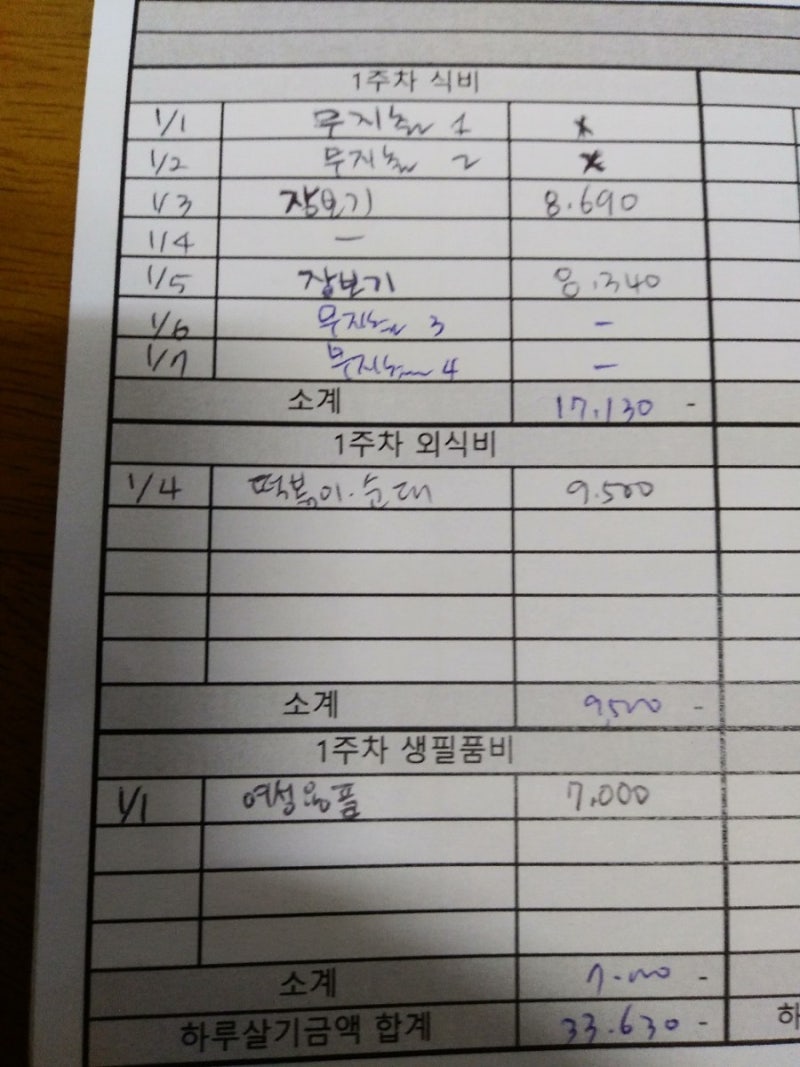 1주차 식비
1/1 무지출 1 x
1/2 무지출 2 x
1/3 장보기 8.690
1/4 —
1/5 장보기 8.340
1/6 무지출 3 —
1/7 무지출 4 —
소계 17.130 -
1주차 외식비
1/4 떡볶이.순대 9.500
소계 9,500 -
1주차 생필품비
1/1 여성용품 7,000
소계 7.000 -
하루살기금액 합계 33.630 - 하